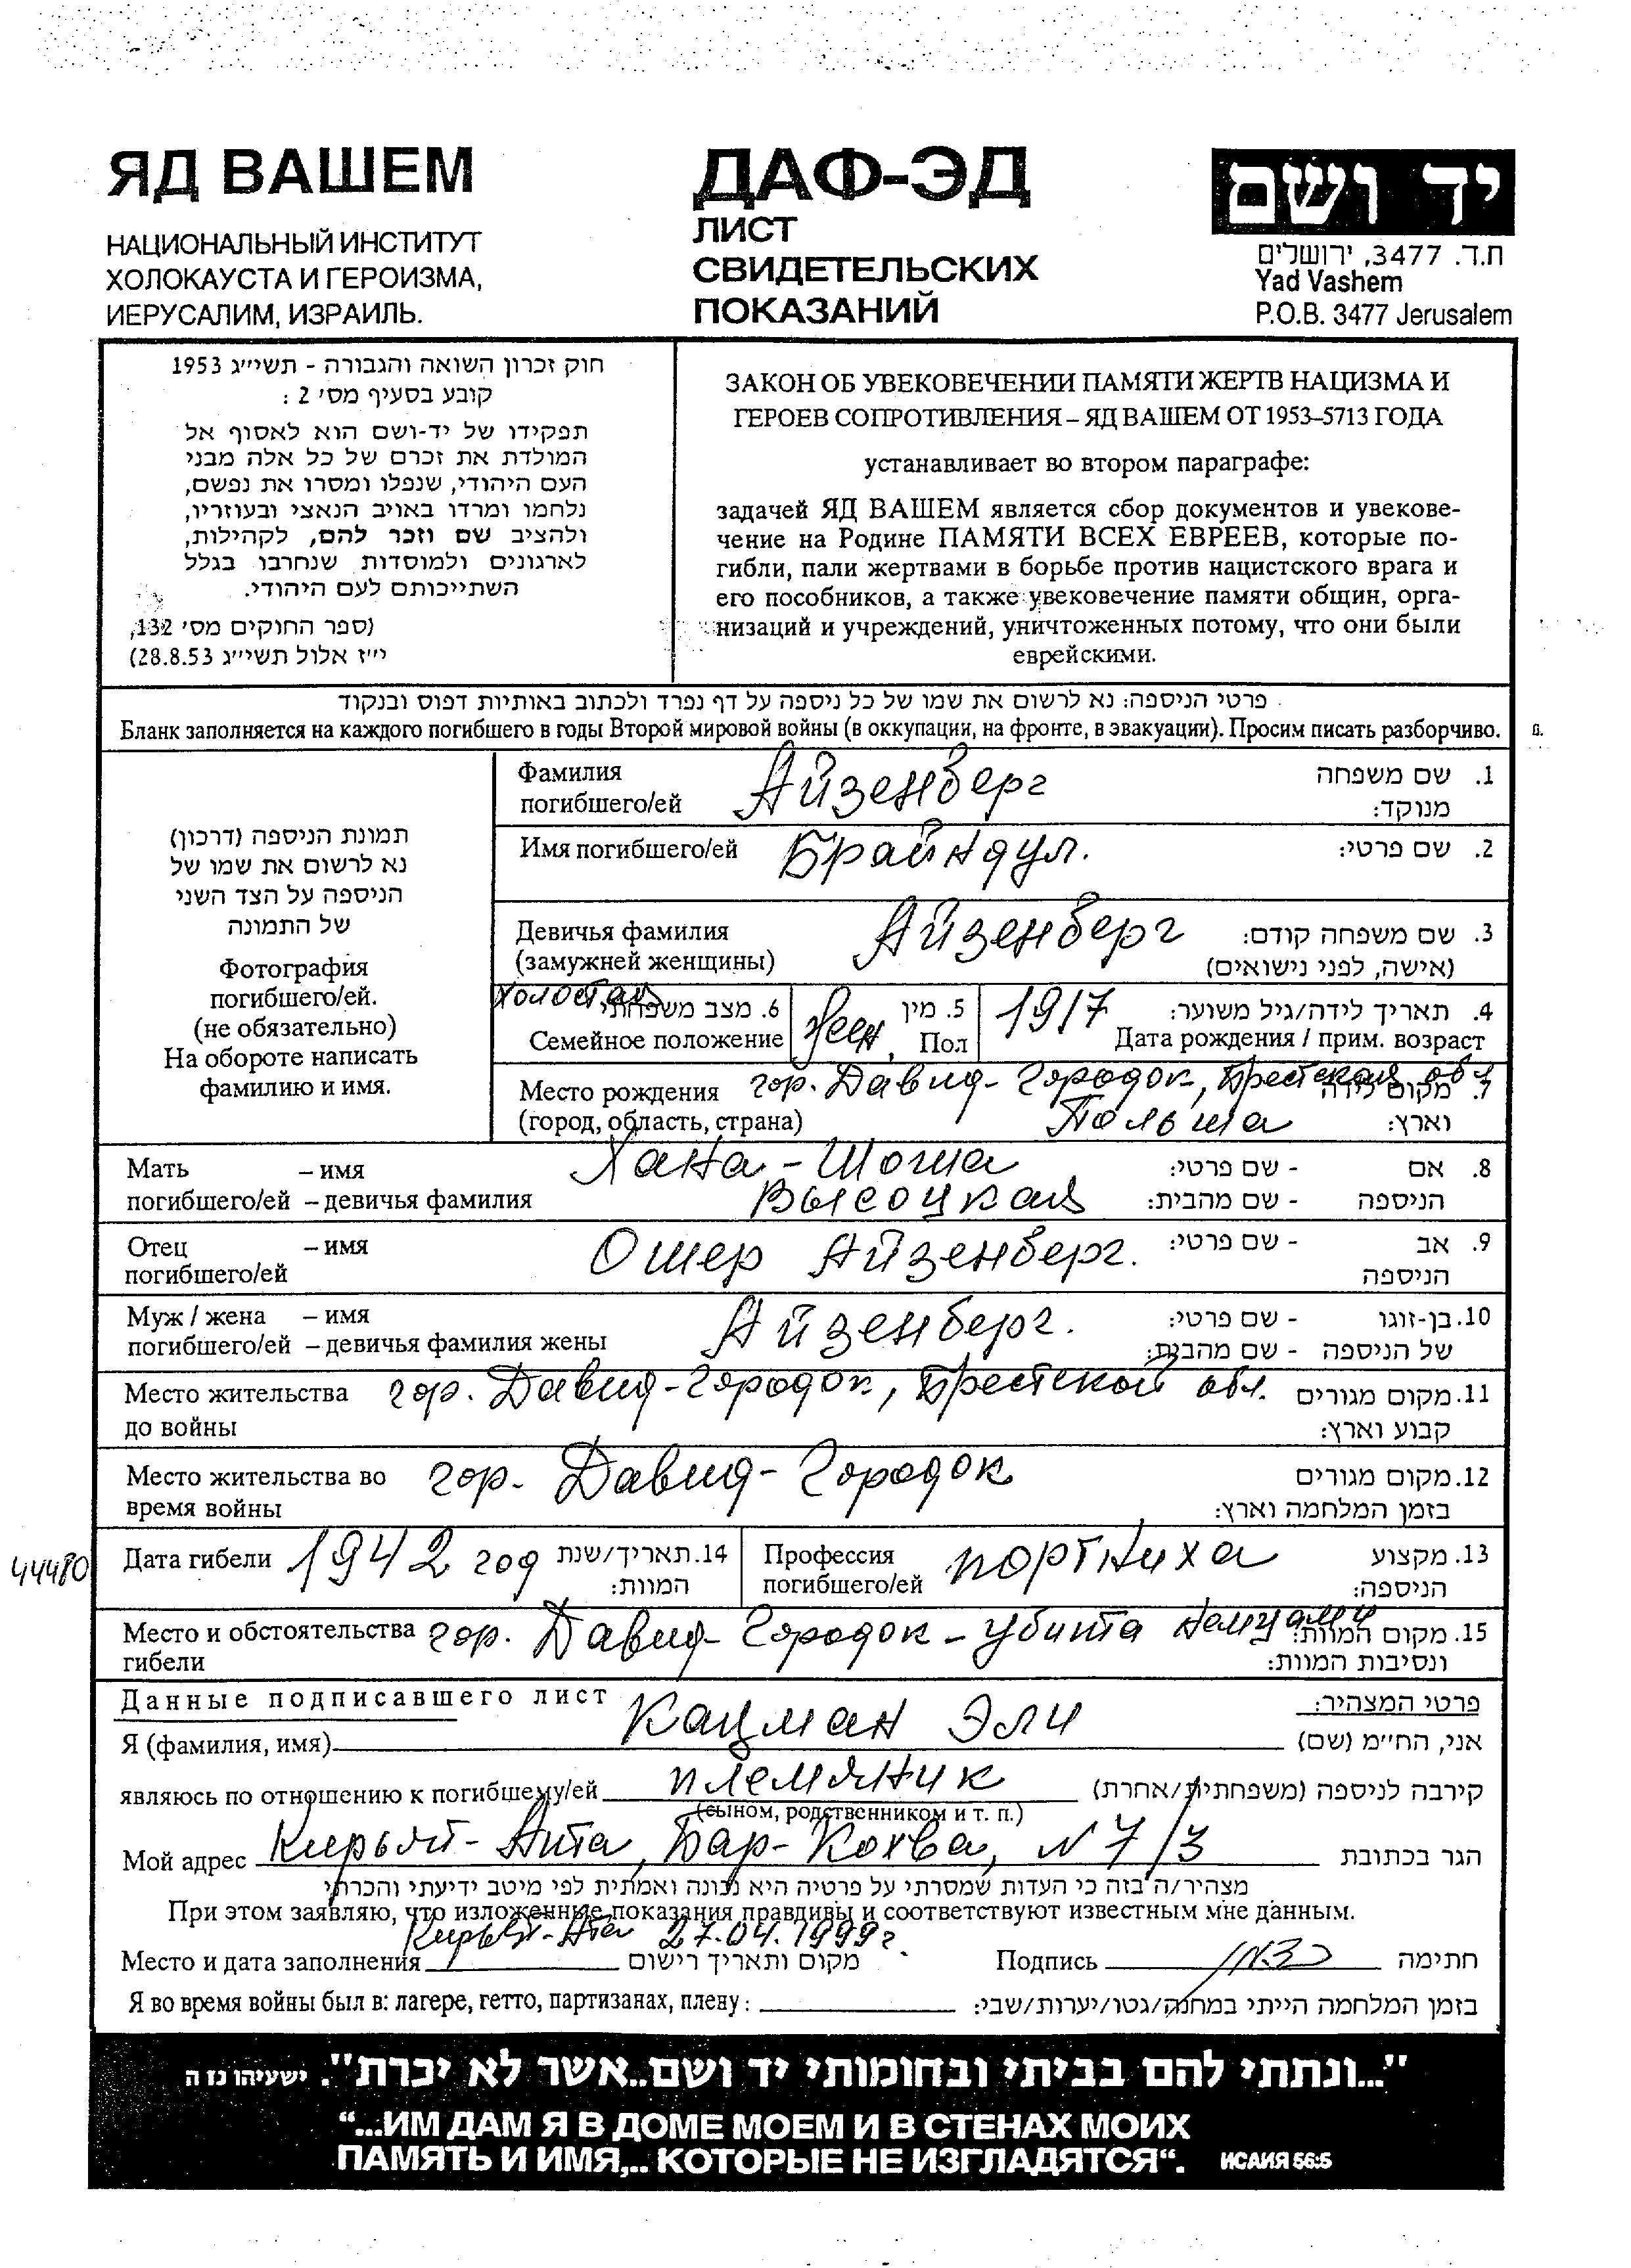 ЯД ВАШЕМ
НАЦИОНАЛЬНЫЙ ИНСТИТУТ
ХОЛОКАУСТА И ГЕРОИЗМА,
ИЕРУСАЛИМ, ИЗРАИЛЬ.
ДАФ-ЭД
ЛИСТ
СВИДЕТЕЛЬСКИХ
ПОКАЗАНИЙ
יד ושם
ת.ד. 3477, ירושלים
Yad Vashem
P.O.B. 3477 Jerusalem
חוק זכרון השואה והגבורה - תשי״ג 1953
קובע בסעיף מס׳ 2 :
תפקידו של יד-ושם הוא לאסוף אל
המולדת את זכרם של כל אלה מבני
העם היהודי, שנפלו ומסרו את נפשם,
נלחמו ומרדו באויב הנאצי ובעוזריו,
ולהציב שם וזכר להם, לקהילות,
לארגונים ולמוסדות שנחרבו בגלל
השתייכותם לעם היהודי.
(ספר החוקים מס׳ 132,
י״ז אלול תשי״ג 28.8.53)
ЗАКОН ОБ УВЕКОВЕЧЕНИИ ПАМЯТИ ЖЕРТВ НАЦИЗМА И
ГЕРОЕВ СОПРОТИВЛЕНИЯ – ЯД ВАШЕМ ОТ 1953–5713 ГОДА
устанавливает во втором параграфе:
задачей ЯД ВАШЕМ является сбор документов и увекове-
чение на Родине ПАМЯТИ ВСЕХ ЕВРЕЕВ, которые по-
гибли, пали жертвами в борьбе против нацистского врага и
его пособников, а также увековечение памяти общин, орга-
низаций и учреждений, уничтоженных потому, что они были
еврейскими.
פרטי הניספה: נא לרשום את שמו של כל ניספה על דף נפרד ולכתוב באותיות דפוס ובנקוד
Бланк заполняется на каждого погибшего в годы Второй мировой войны (в оккупации, на фронте, в эвакуации). Просим писать разборчиво.
תמונת הניספה (דרכון)
נא לרשום את שמו של
הניספה על הצד השני
של התמונה
Фотография
погибшего/ей.
(не обязательно)
На обороте написать
фамилию и имя.
Фамилия Айзенберг 1. שם משפחה
погибшего/ей מנוקד:
Имя погибшего/ей Брайндул. 2. שם פרטי:
Девичья фамилия Айзенберг 3. שם משפחה קודם:
(замужней женщины) (אישה, לפני נישואים)
холостая 6. מצב משפחתי
Семейное положение
жен, 5. מין
Пол
1917 4. תאריך לידה/גיל משוער:
Дата рождения / прим. возраст
Место рождения гор. Давид-Городок, Брестская обл 7. מקום לידה
(город, область, страна) Польша וארץ:
Мать – имя Хана-Шоша 8. אם - שם פרטי:
погибшего/ей – девичья фамилия Высоцкая הניספה - שם מהבית:
Отец – имя Ошер Айзенберг. 9. אב - שם פרטי:
погибшего/ей הניספה
Муж / жена – имя Айзенберг. 10. בן-זוגו - שם פרטי:
погибшего/ей – девичья фамилия жены של הניספה - שם מהבית:
Место жительства гор. Давид-Городок, Брестской обл. 11. מקום מגורים
до войны קבוע וארץ:
Место жительства во гор. Давид-Городок 12. מקום מגורים
время войны בזמן המלחמה וארץ:
44480
Дата гибели 1942 год 14. תאריך/שנת
המוות:
Профессия портниха 13. מקצוע
погибшего/ей הניספה:
Место и обстоятельства гор. Давид-Городок – убита немцами 15. מקום המוות:
гибели ונסיבות המוות:
Данные подписавшего лист פרטי המצהיר:
Я (фамилия, имя) Кацман Эли אני, הח״מ (שם)
являюсь по отношению к погибшему/ей племяник קירבה לניספה (משפחתית/אחרת)
(сыном, родственником и т. п.)
Мой адрес Кирьят-Ата, Бар-Кохва, N 7/3 הגר בכתובת
מצהיר/ה בזה כי העדות שמסרתי על פרטיה היא נכונה ואמתית לפי מיטב ידיעתי והכרתי
При этом заявляю, что изложенные показания правдивы и соответствуют известным мне данным.
Место и дата заполнения Кирьят-Ата 27.04.1999г. מקום ותאריך רישום Подпись חתימה
Я во время войны был в: лагере, гетто, партизанах, плену: בזמן המלחמה הייתי במחנה/גטו/יערות/שבי:
"...ונתתי להם בביתי ובחומותי יד ושם..אשר לא יכרת". ישעיהו נז ה
“...ИМ ДАМ Я В ДОМЕ МОЕМ И В СТЕНАХ МОИХ
ПАМЯТЬ И ИМЯ,.. КОТОРЫЕ НЕ ИЗГЛАДЯТСЯ“. ИСАИЯ 56:5